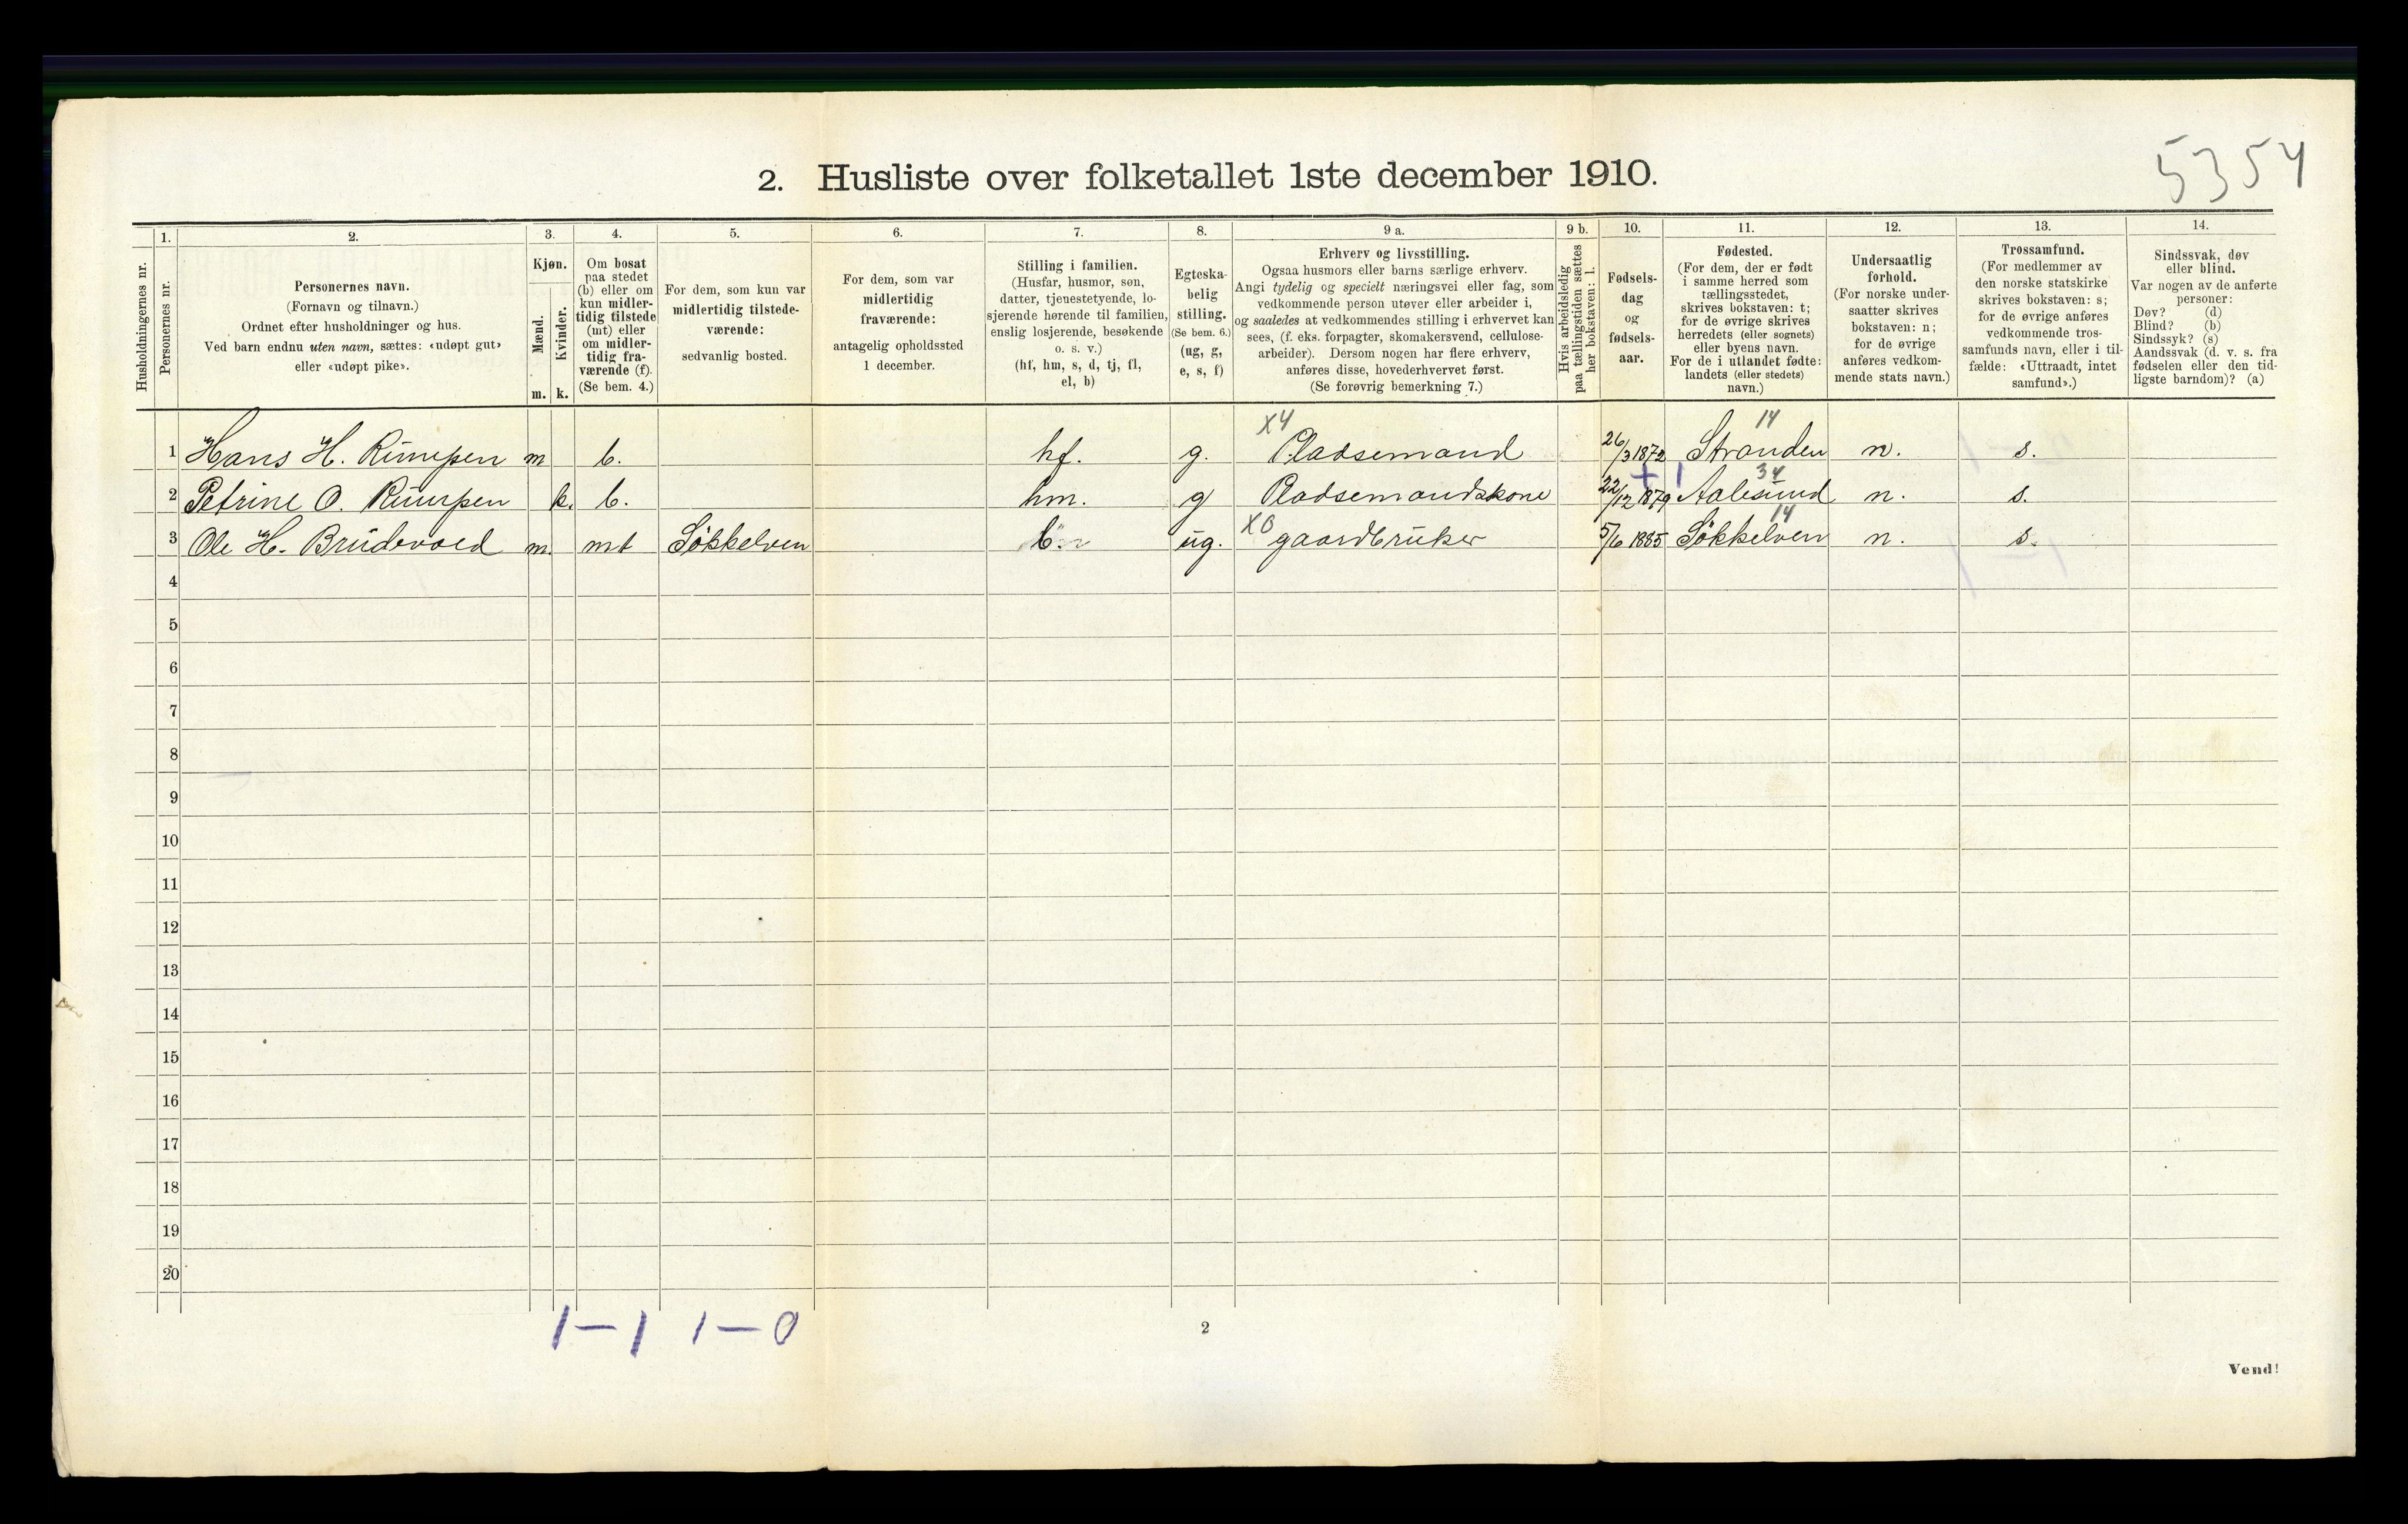 5354
2. Husliste over folketallet 1ste december 1910.
Husholdningernes nr.
1.
Personernes nr.
2.
Personernes navn.
(Fornavn og tilnavn.)
Ordnet efter husholdninger og hus.
Ved barn endnu uten navn, sættes: «udøpt gut»
eller «udøpt pike».
3.
Kjøn.
Mænd.
Kvinder.
m. k.
4.
Om bosat
paa stedet
(b) eller om
kun midler-
tidig tilstede
(mt) eller
om midler-
tidig fra-
værende (f).
(Se bem. 4.)
5.
For dem, som kun var
midlertidig tilstede-
værende:
sedvanlig bosted.
6.
For dem, som var
midlertidig
fraværende:
antagelig opholdssted
1 december.
7.
Stilling i familien.
(Husfar, husmor, søn,
datter, tjenestetyende, lo-
sjerende hørende til familien,
enslig losjerende, besøkende
o. s. v.)
(hf, hm, s, d, tj, fl,
el, b)
8.
Egteska-
belig
stilling.
(Se bem. 6.)
(ug, g,
e, s, f)
9 a.
Erhverv og livsstilling.
Ogsaa husmors eller barns særlige erhverv.
Angi tydelig og specielt næringsvei eller fag, som
vedkommende person utøver eller arbeider i,
og saaledes at vedkommendes stilling i erhvervet kan
sees, (f. eks. forpagter, skomakersvend, cellulose-
arbeider). Dersom nogen har flere erhverv,
anføres disse, hovederhvervet først.
(Se forøvrig bemerkning 7.)
9 b.
Hvis arbeidsledig
paa tællingstiden sættes
her bokstaven: l.
10.
Fødsels-
dag
og
fødsels-
aar.
11.
Fødested.
(For dem, der er født
i samme herred som
tællingsstedet,
skrives bokstaven: t;
for de øvrige skrives
herredets (eller sognets)
eller byens navn.
For de i utlandet fødte:
landets (eller stedets)
navn.)
12.
Undersaatlig
forhold.
(For norske under-
saatter skrives
bokstaven: n;
for de øvrige
anføres vedkom-
mende stats navn.)
13.
Trossamfund.
(For medlemmer av
den norske statskirke
skrives bokstaven: s;
for de øvrige anføres
vedkommende tros-
samfunds navn, eller i til-
fælde: «Uttraadt, intet
samfund».)
14.
Sindssvak, døv
eller blind.
Var nogen av de anførte
personer:
Døv? (d)
Blind? (b)
Sindssyk? (s)
Aandssvak (d. v. s. fra
fødselen eller den tid-
ligste barndom)? (a)
X4 14
1 Hans H. m b. hf. g. Pladsemand 26/3 1872 Stranden n. s.
+ 1 34
2 Petrine O. k. b. hm. g Pladsemandskone 22/12 1879 Aalesund n. s.
X0 14
3 Ole H. Brudevold m. mt Søkkelven b. ug. gaardbruker 5/6 1885 Søkkelven n. s.
4
5
6
7
8
9
10
11
12
13
14
15
16
17
18
19
20
1-1 1-0
2
Vend!